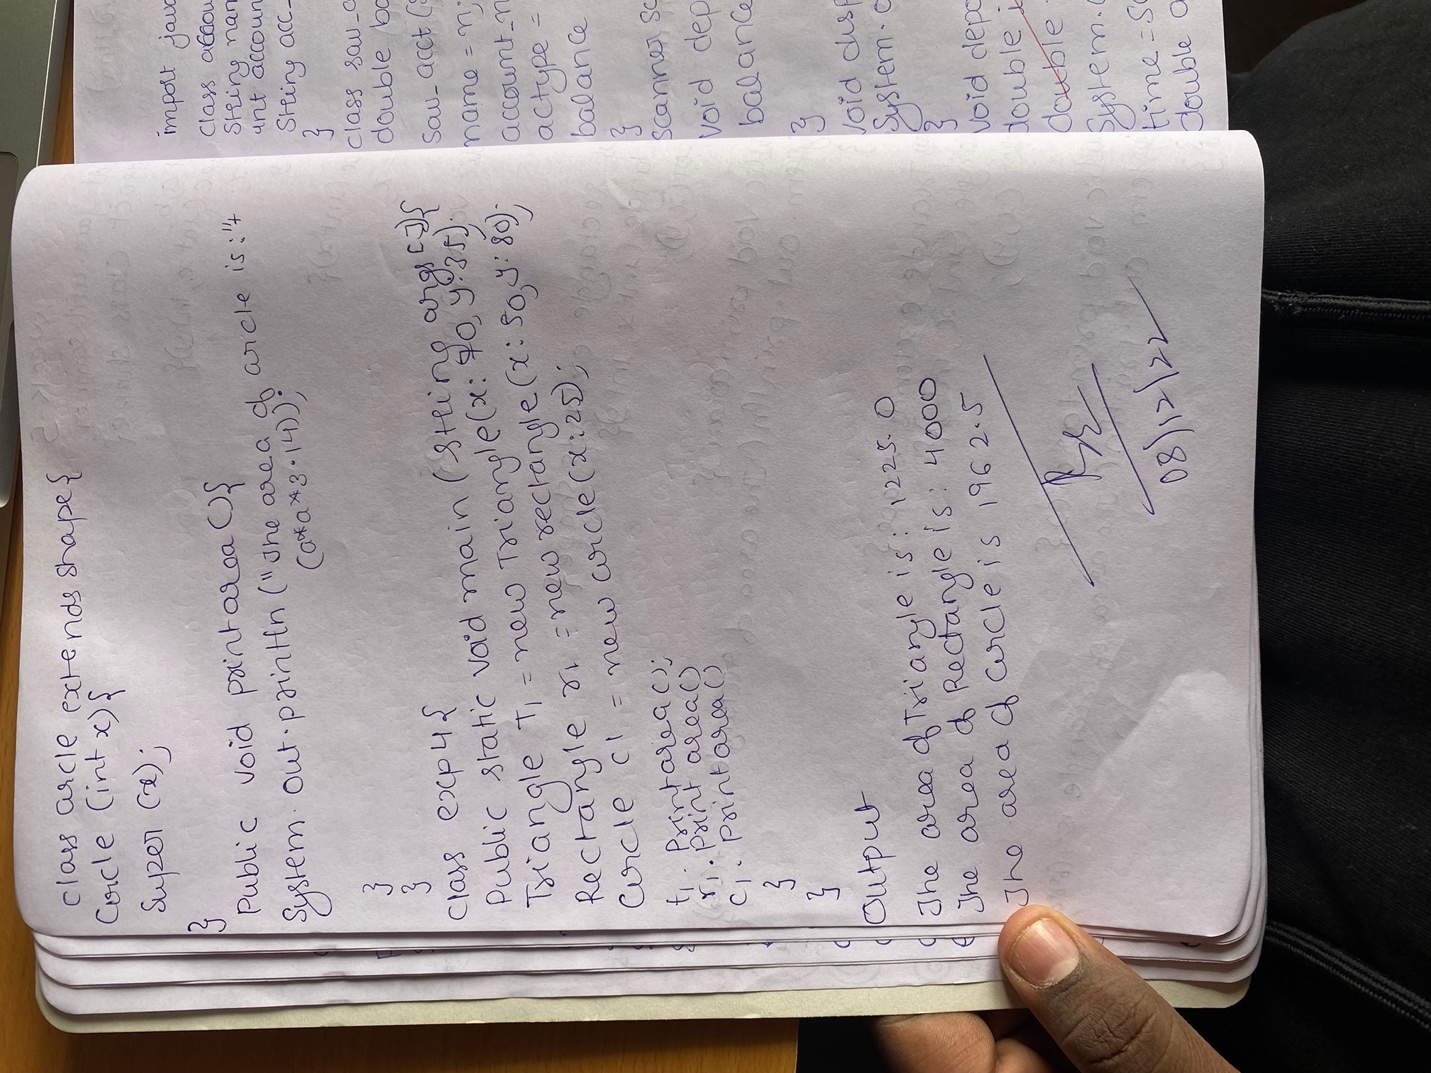 class circle extends shape{
Circle (int x){
super (x);
}
public void printarea(){
System.out.println("The area of circle is:"+
(a*a*3.14));
}
}
class exp4{
Public static void main (string args[]){
Triangle T1 = new Triangle(x: 70, y:35);
Rectangle r1 = new rectangle(x:50,y:80);
Circle c1 = new circle(x:25);
t1.printarea();
r1.printarea()
c1.printarea()
}
}
Output
The area of Triangle is: 1225.0
The area of Rectangle is: 4000
The area of circle is 1962.5
08/12/22
import java
class accou
string nam
int accoun
String acc-
}
class sav-a
double ba
sav-acct(s
name = n;
account-n
actype =
balance
}
scanner sc
void dep
balance
}
void disp
System.o
}
void depo
double
double
System.o
time = sc
double a